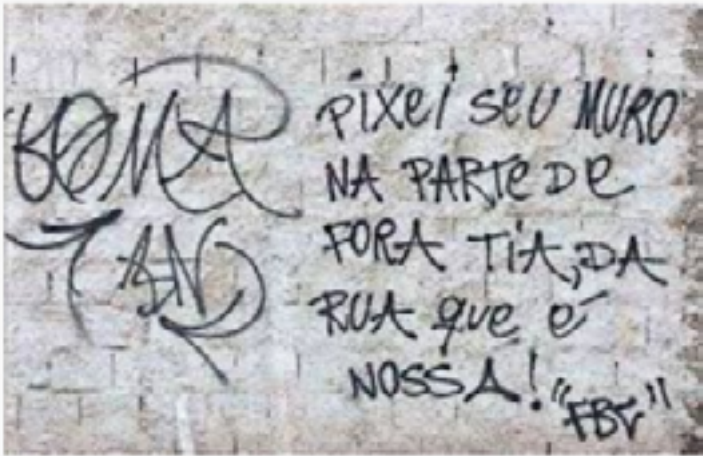 PIXEI SEU MURO
NA PARTE DE
FORA TIA, DA
RUA QUE É
NOSSA! "FBC"